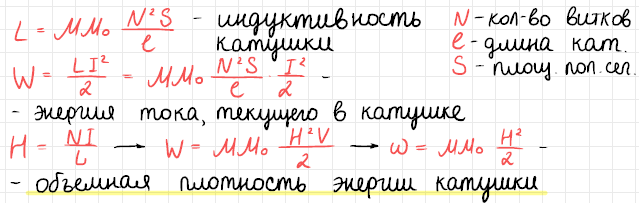 L = μμ₀ N²S/ℓ - индуктивность катушки
N - кол-во витков
ℓ - длина кат.
S - площ. поп. сеч.
W = LI²/2 = μμ₀ N²S/ℓ · I²/2 -
- энергия тока, текущего в катушке
H = NI/L → W = μμ₀ H²V/2 → ω = μμ₀ H²/2 -
- объемная плотность энергии катушки